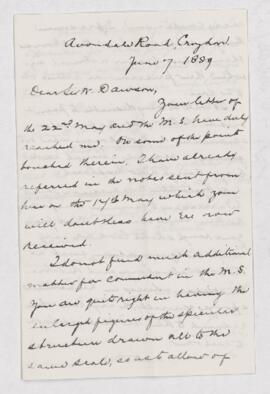 Avondale Road, Croydon.
June 7. 1889
Dear Sir W. Dawson,
Your letter of
the 22nd May and the M.S. have duly
reached me. On some of the points
touched therein, I have already
referred in the notes sent from
here on the 14th May which you
will doubtless have ere now
received.
I do not find much additional
matter for comment in the M.S.
You are quite right in having the
enlarged figures of the spicular
structure drawn all to the
same scale, so as to allow of